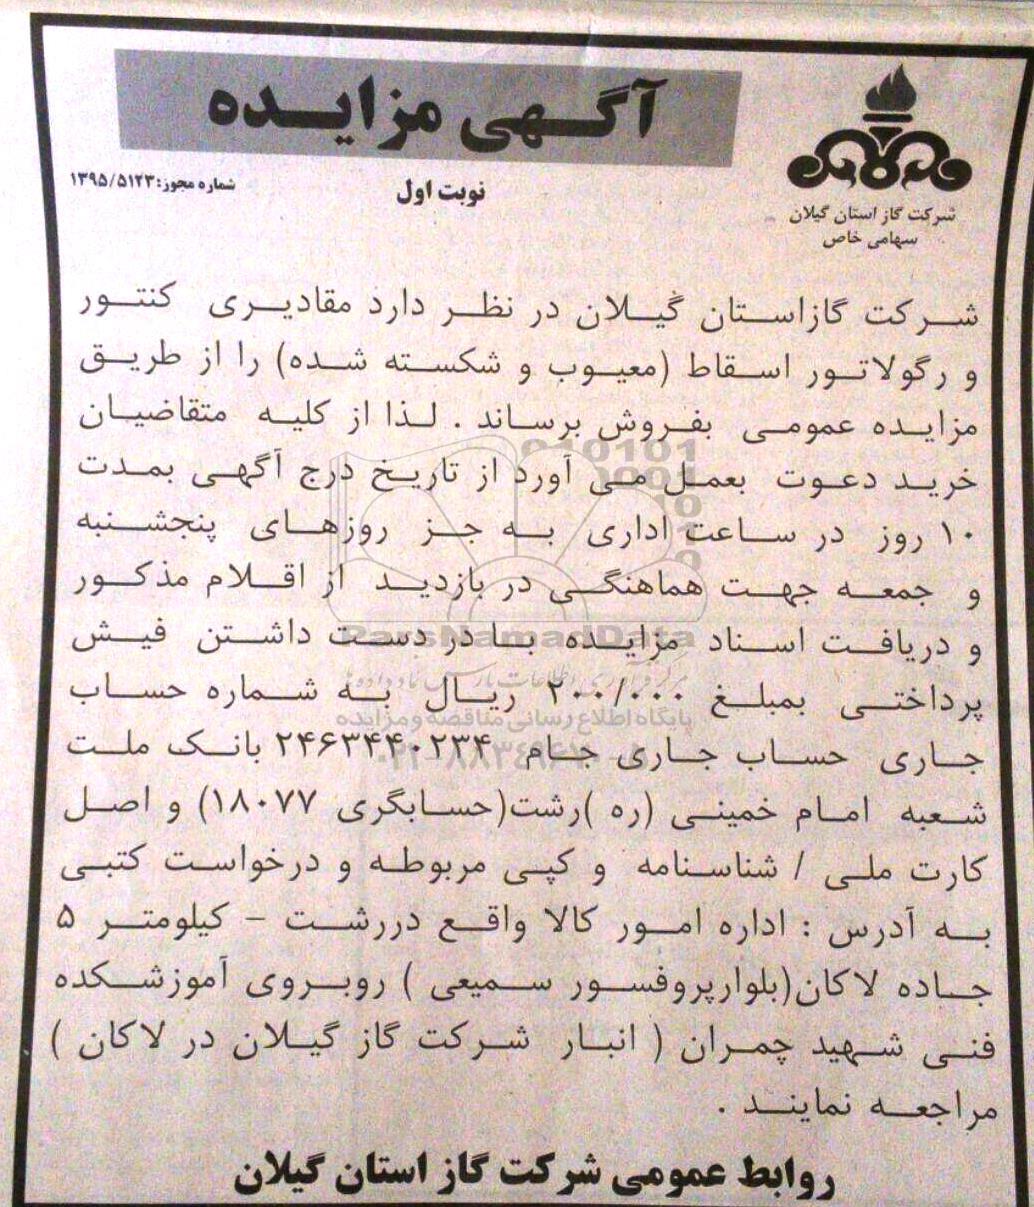 آگهی مزایده
شرکت گاز استان گیلان
سهامی خاص
نوبت اول
شماره مجوز: ۱۳۹۵/۵۱۲۳
شرکت گازاستان گیلان در نظر دارد مقادیری کنتور
و رگولاتور اسقاط (معیوب و شکسته شده) را از طریق
مزایده عمومی بفروش برساند . لذا از کلیه متقاضیان
خرید دعوت بعمل می آورد از تاریخ درج آگهی بمدت
۱۰ روز در ساعت اداری به جز روزهای پنجشنبه
و جمعه جهت هماهنگی در بازدید از اقلام مذکور
و دریافت اسناد مزایده با در دست داشتن فیش
پرداختی بمبلغ ۲۰۰/۰۰۰ ریال به شماره حساب
جاری حساب جاری جام ۲۴۶۳۴۴۰۲۳۴ بانک ملت
شعبه امام خمینی (ره )رشت(حسابگری ۱۸۰۷۷) و اصل
کارت ملی / شناسنامه و کپی مربوطه و درخواست کتبی
به آدرس : اداره امور کالا واقع دررشت - کیلومتر ۵
جاده لاکان(بلوارپروفسور سمیعی ) روبروی آموزشکده
فنی شهید چمران ( انبار شرکت گاز گیلان در لاکان )
مراجعه نمایند .
روابط عمومی شرکت گاز استان گیلان
ParsNamadData
پایگاه اطلاع رسانی مناقصه و مزایده